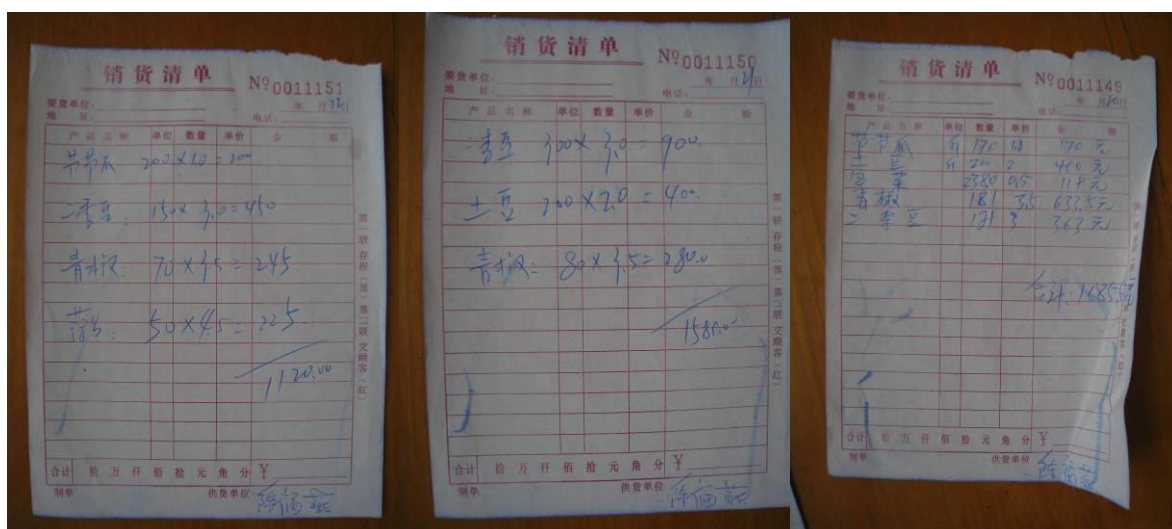 销货清单
№0011151
要货单位：
年 月12日
地 址：
电话：
产品名称 单位 数量 单价 金 额
节节瓜 200×1.0=200
二青豆: 150×3.0=450
青椒 70×3.5=245
50×4.5=225
1120.00
合计 拾 万 仟 佰 拾 元 角 分 ¥
制单 供货单位
第一联 存根（黑） 第二联 交顾客（红）
销货清单
№0011150
要货单位：
年 月21日
地 址：
电话：
产品名称 单位 数量 单价 金 额
二青豆 300×3.0=900.
土豆 200×2.0=400.
青椒= 80×3.5=280.0
1580.00
合计 拾 万 仟 佰 拾 元 角 分 ¥
制单 供货单位
第一联 存根（黑） 第二联 交顾客（红）
销货清单
№0011149
要货单位：
年 月20日
地 址：
电话：
产品名称 单位 数量 单价 金 额
节节瓜 斤 170 170元
土豆 斤 200 2 400元
2380 0.5 119元
青椒 181 3.5 633.5元
二青豆 121 3 363元
合计：1685.5元
合计 拾 万 仟 佰 拾 元 角 分 ¥
制单 供货单位